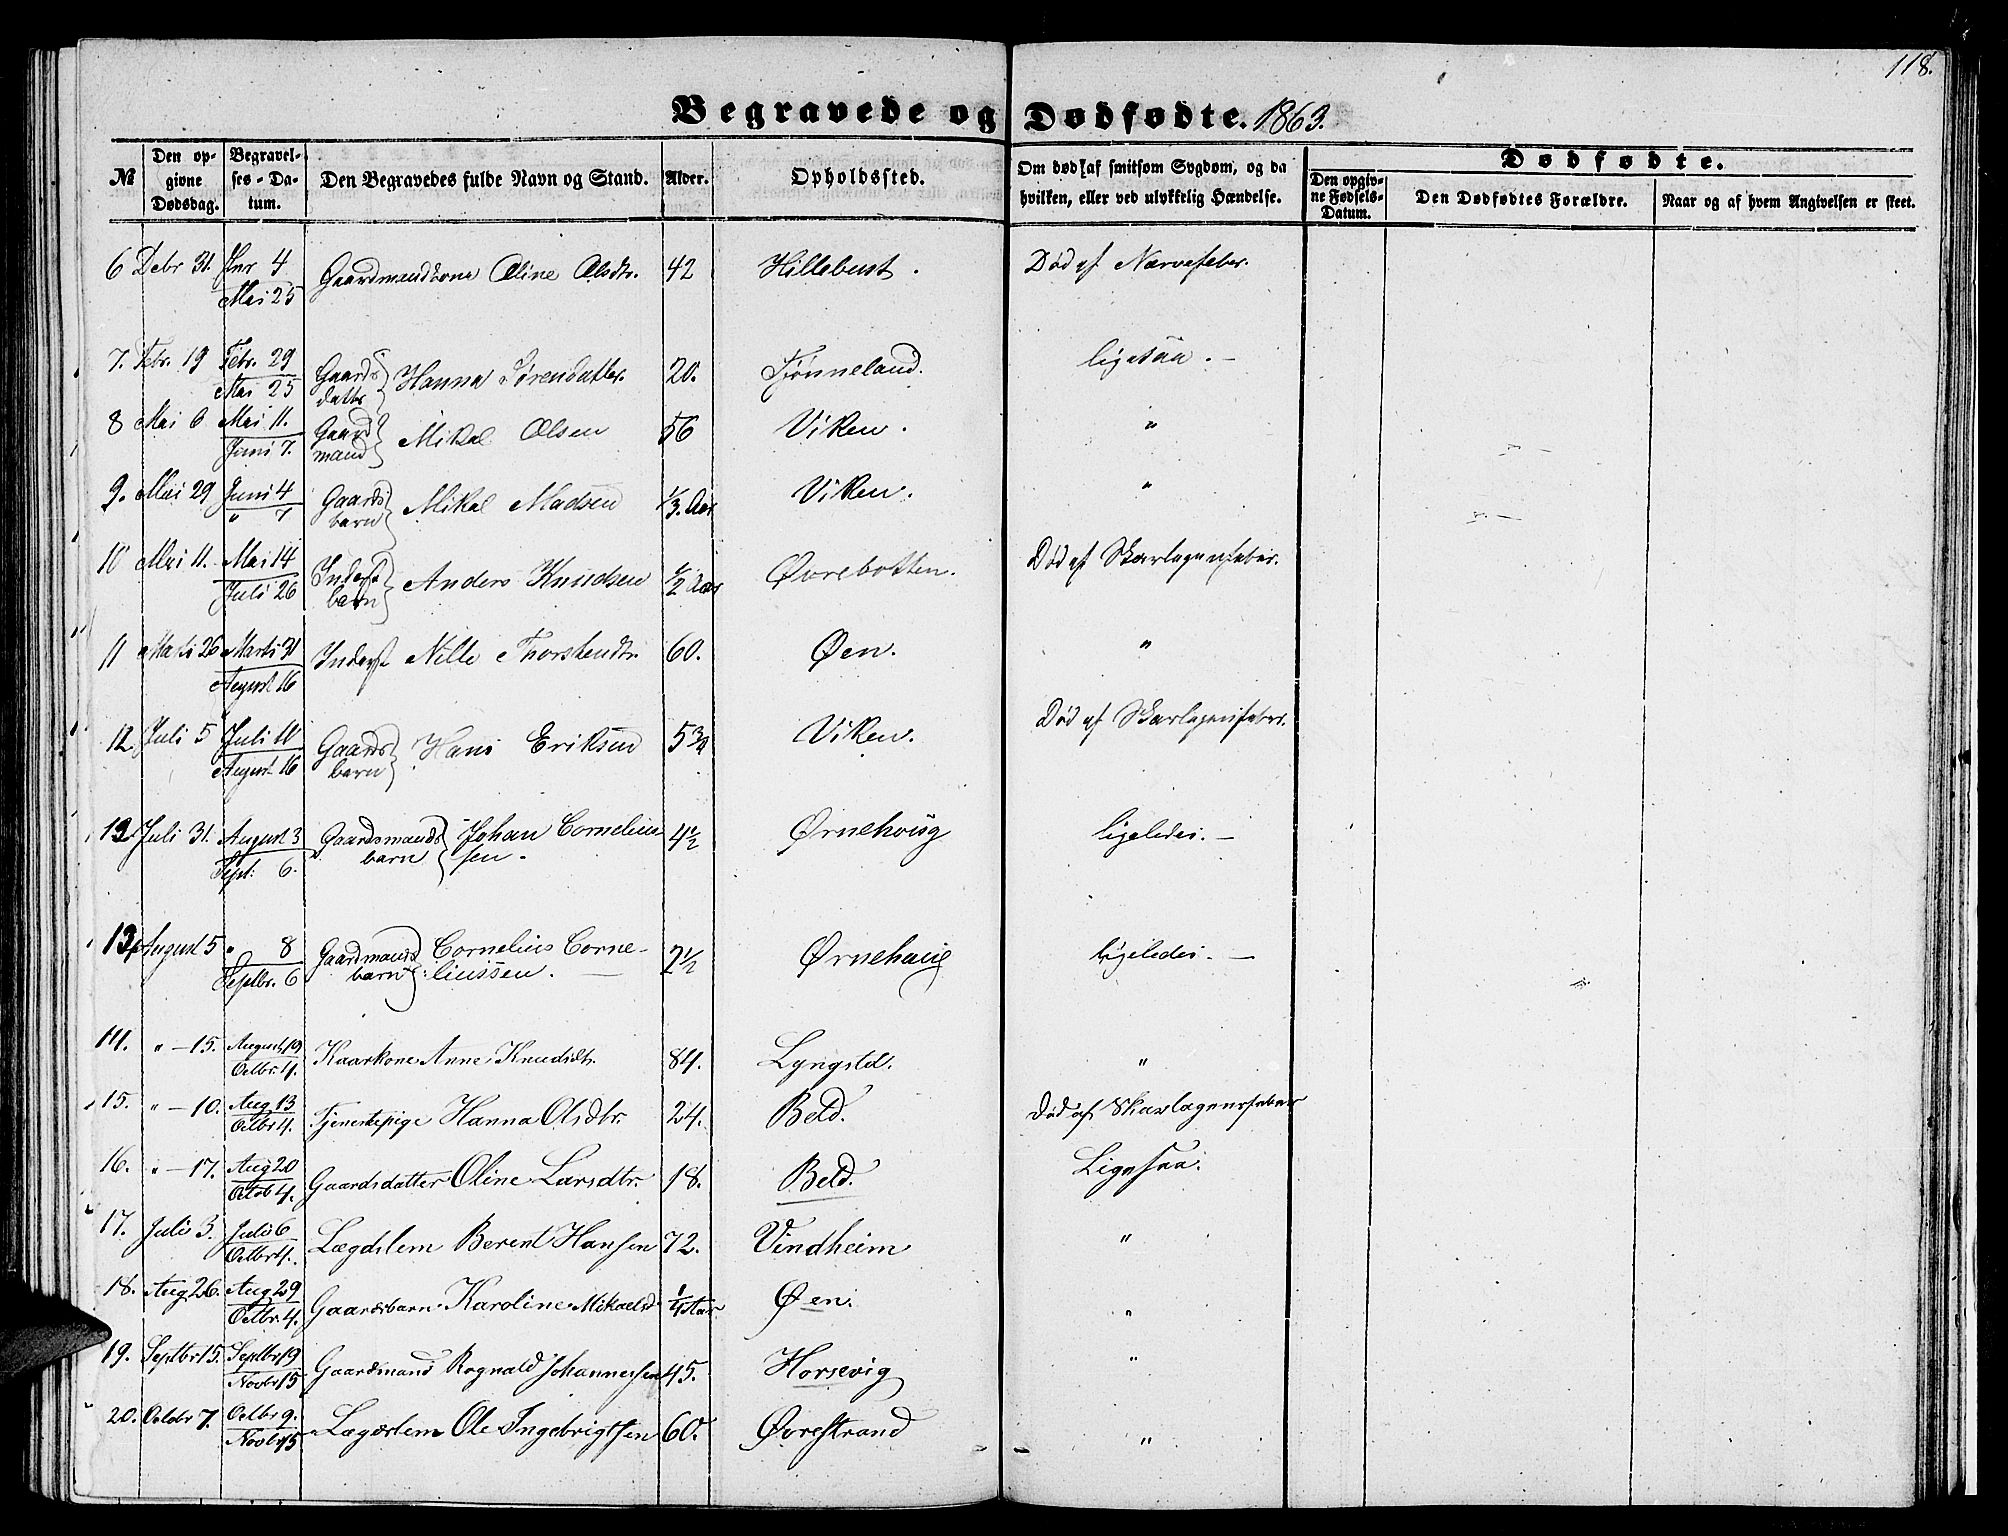 118.
Begravede og Dødfødte. 1863.
№ Den opgivne Dødsdag. Begravelses-Datum. Den Begravedes fulde Navn og Stand. Alder. Opholdssted. Om død af smitsom Sygdom, og da hvilken, eller ved ulykkelig Hændelse. Dødfødte. Den opgivne Fødsels-Datum. Den Dødfødtes Forældre. Naar og af hvem Angivelsen er skeet.
6 Debr 31. Jnr 4 Gaardmandkone Oline Olsdtr. 42 Hillebust. Død af Nervefeber.
Mai 25
7. Febr. 19 Febr. 29 Gaards datter Hanna Sørendatter. 20. Tjønneland. ligesaa. —
Mai 25
8 Mai 6 Mai 11. Gaard mand Mikal Olsen 56 Viken. "
Juni 7.
9. Mai 29 Juni 4 Gaards barn Mikal Madsen 1/3. Aar Viken. "
" 7
10 Mai 11. Mai 14 Inderst barn Anders Knudsen 1/2 Aar Øvrebotten. Død af Skarlagensfeber.
Juli 26
11 Marts 26 Marts 31 Inderst Nille Thorstendtr. 60. Øen. "
August 16
12 Juli 5 Juli 11 Gaards barn Hans Eriksen 5 3/4 Viken. Død af Skarlagensfeber.
August 16
12 Juli 31. August 3 Gaardsmands barn Johan Corneliussen. 4 1/2 Ørnehoug ligeledes. —
Sept: 6.
13 August 5 " 8 Gaardmands barn Cornelius Corneliussen. 2 1/2 Ørnehaug ligeledes. —
Septbr. 6
14. " — 15. August 19 Kaarkone Anne Knudsdtr. 84. Lyngstd. "
Octbr. 4.
15. " — 10. Aug 13 Tjenestepige Hanna Olsdtr. 24. Beld. Død af Skarlagensfeber
Octbr 4.
16. " — 17. Aug 20 Gaardsdatter Oline Larsdtr. 18. Beld. Ligesaa.
Octob 4.
17. Juli 3. Juli 6 Lægdslem Berent Hansen 72. Vindheim "
Octbr 4.
18. Aug 26. Aug 29 Gaardsbarn Karoline Mikaelsd 1/4 Aar Øen. "
Octbr. 4.
19. Septbr 15. Septbr 19 Gaardmand Rognald Johannessen 45. Horsevig "
Novbr 15
20. Octobr 7. Octbr 9. Lægdslem Ole Ingebrigtsen 60. Øvrestrand "
Novbr 15